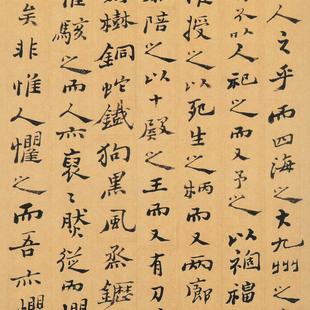 人之乎而四海之大九州之
不以人祀之而又予之以禍福
惟授之以死生之柄而又兩廊
陪之以十殿之王而又有刀
樹銅蛇鐵狗黑風蒸
駭之而人亦裒〻然從而
矣非惟人懼之而吾亦懼